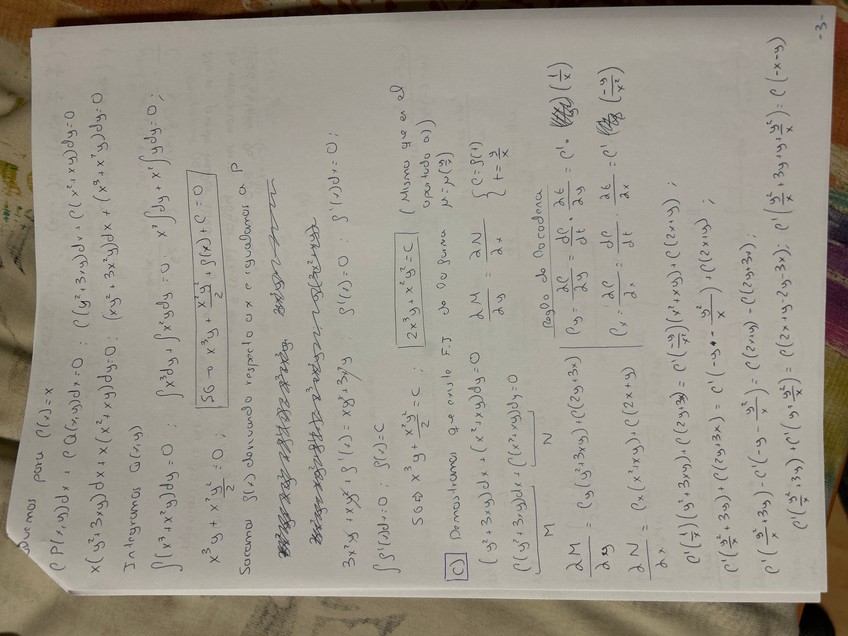 para ρ(x)=x
ρP(x,y)dx + ρQ(x,y)dx=0 ; ρ(y²+3xy)dx + ρ(x²+xy)dy=0
x(y²+3xy)dx + x(x²+xy)dy=0 ; (xy²+3x²y)dx + (x³+x²y)dy=0
Integramos Q(x,y)
∫(x³+x²y)dy=0 ; ∫x³dy + ∫x²ydy=0 ; x³∫dy + x²∫ydy=0 ;
x³y + x²y²/2 = 0 ; SG → x³y + x²y²/2 + f(x) + C = 0
Sacamos f(x) derivando respecto a x e igualamos a P
3x²y + xy² + f'(x) = xy² + 3x²y ; f'(x)=0 ; f'(x)dx=0 ;
∫f'(x)dx=0 ; f(x)=C
SG → x³y + x²y²/2 = C ; 2x³y + x²y² = C (Mismo que en el apartado a))
c) Demostramos que existe F.I de la forma μ=μ(y/x)
(y²+3xy)dx + (x²+xy)dy=0 ∂M/∂y = ∂N/∂x { ρ=f(t) t=y/x
ρ(y²+3xy)dx + ρ(x²+xy)dy=0
M N Regla de la cadena
∂M/∂y = ρy(y²+3xy)+ρ(2y+3x) ρy = ∂ρ/∂y = dρ/dt · ∂t/∂y = ρ' · (1/x)
∂N/∂x = ρx(x²+xy)+ρ(2x+y) ρx = ∂ρ/∂x = dρ/dt · ∂t/∂x = ρ' (-y/x²)
ρ'(1/x)(y²+3xy)+ρ(2y+3x) = ρ'(-y/x²)(x²+xy)+ρ(2x+y) ;
ρ'(y²/x+3y)+ρ(2y+3x) = ρ'(-y - y²/x)+ρ(2x+y) ;
ρ'(y²/x+3y) - ρ'(-y - y²/x) = ρ(2x+y) - ρ(2y+3x) ;
ρ'(y²/x+3y)+ρ'(y+y²/x) = ρ(2x+y-2y-3x) ; ρ'(y²/x+3y+y+y²/x) = ρ(-x-y)
-3-